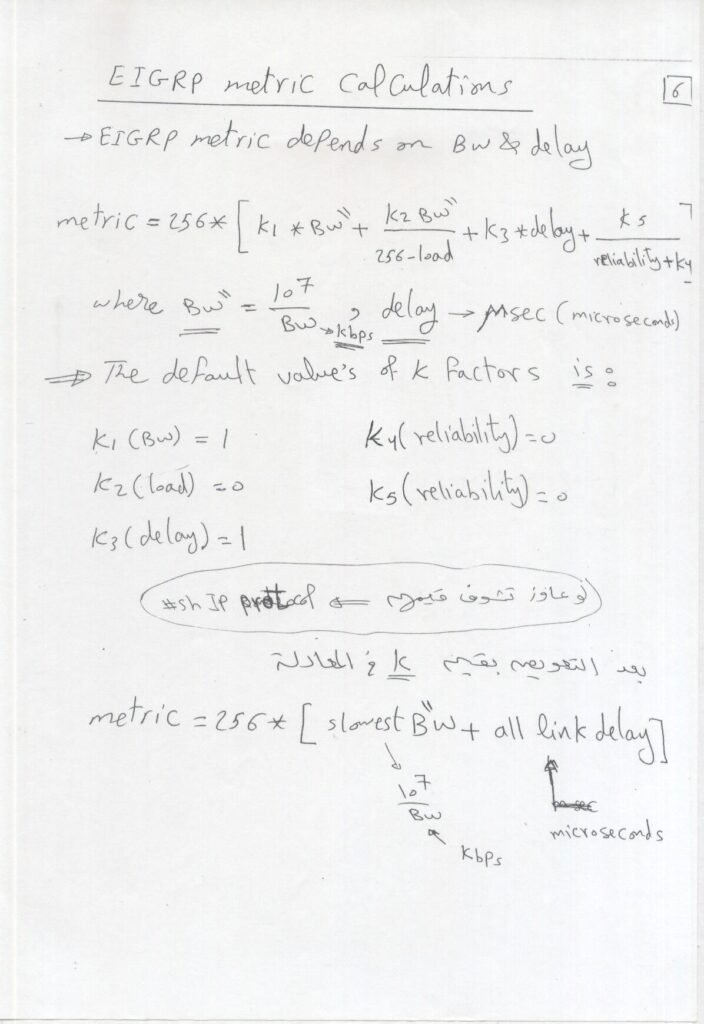 EIGRP metric calculations
6
→ EIGRP metric depends on BW & delay
metric = 256 * [ K1 * BW" + K2 BW" / 256-load + K3 * delay + K5 / reliability + K4 ]
where BW" = 10^7 / BW → kbps , delay → μsec (microseconds)
⇒ The default value's of K factors is :
K1 (BW) = 1
K4 (reliability) = 0
K2 (load) = 0
K5 (reliability) = 0
K3 (delay) = 1
لو عاوز تشوف قيمهم ⇐ #sh IP protocol
بعد التعويض بقيم K في المعادلة
metric = 256 * [ slowest B"W + all link delay ]
10^7 / BW
kbps
microseconds